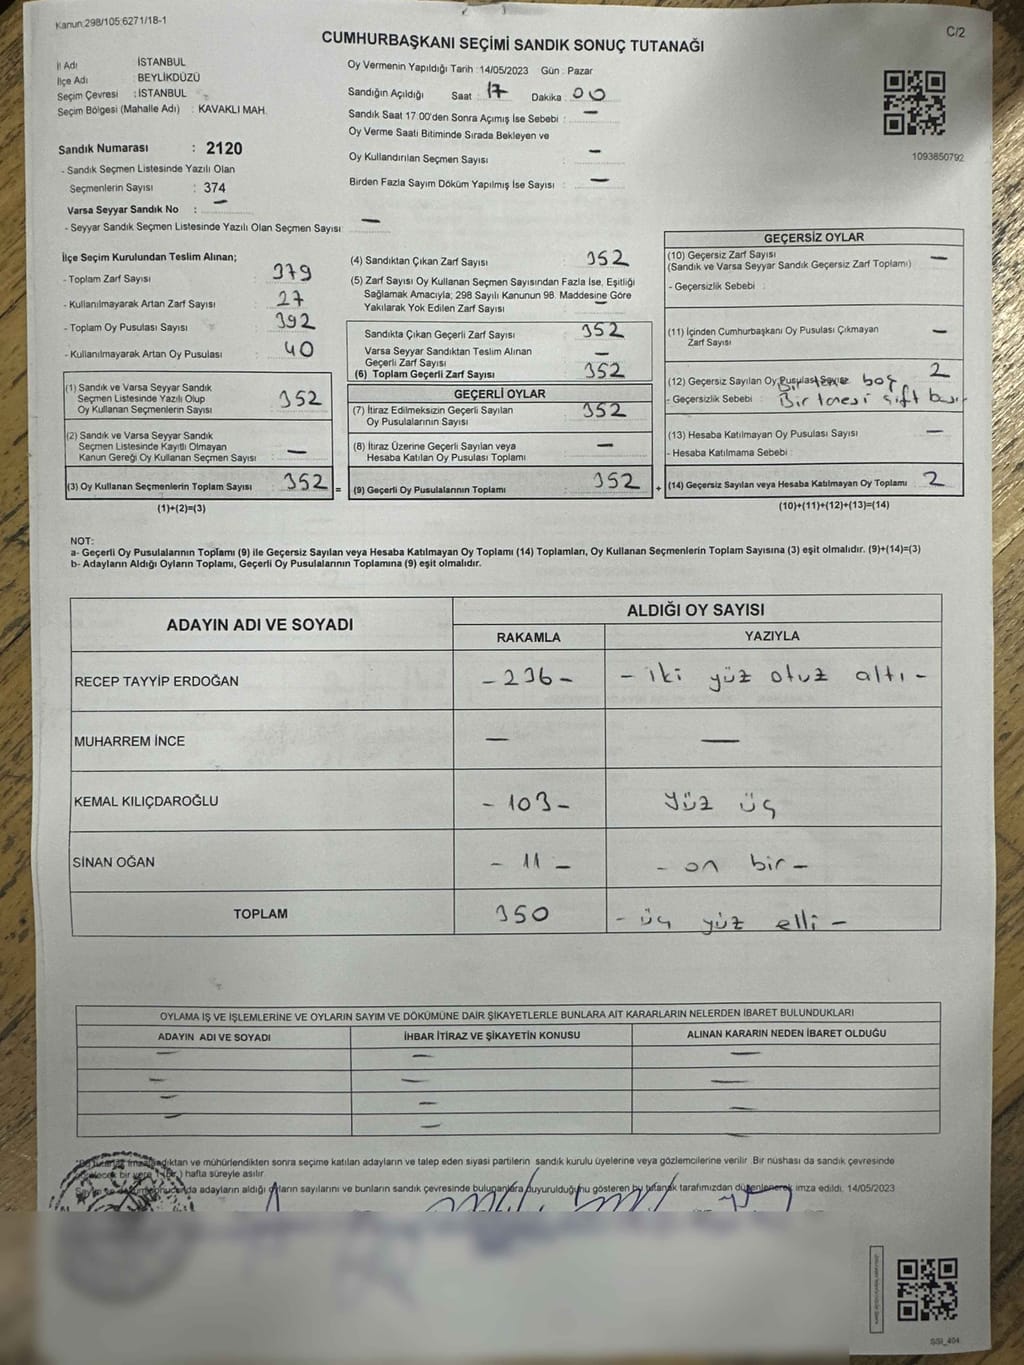 Kanun:298/105;6271/18-1
C/2
CUMHURBAŞKANI SEÇİMİ SANDIK SONUÇ TUTANAĞI
İl Adı : İSTANBUL
İlçe Adı : BEYLİKDÜZÜ
Seçim Çevresi : İSTANBUL
Seçim Bölgesi (Mahalle Adı) : KAVAKLI MAH.
Sandık Numarası : 2120
- Sandık Seçmen Listesinde Yazılı Olan
Seçmenlerin Sayısı : 374
Varsa Seyyar Sandık No : —
- Seyyar Sandık Seçmen Listesinde Yazılı Olan Seçmen Sayısı —
Oy Vermenin Yapıldığı Tarih : 14/05/2023 Gün : Pazar
Sandığın Açıldığı Saat : 17 Dakika : 00
Sandık Saat 17:00'den Sonra Açımış İse Sebebi : —
Oy Verme Saati Bitiminde Sırada Bekleyen ve
Oy Kullandırılan Seçmen Sayısı : —
Birden Fazla Sayım Döküm Yapılmış İse Sayısı : —
1093850792
İlçe Seçim Kurulundan Teslim Alınan;
- Toplam Zarf Sayısı : 379
- Kullanılmayarak Artan Zarf Sayısı : 27
- Toplam Oy Pusulası Sayısı : 392
- Kullanılmayarak Artan Oy Pusulası : 40
(1) Sandık ve Varsa Seyyar Sandık
Seçmen Listesinde Yazılı Olup
Oy Kullanan Seçmenlerin Sayısı : 352
(2) Sandık ve Varsa Seyyar Sandık
Seçmen Listesinde Kayıtlı Olmayan
Kanun Gereği Oy Kullanan Seçmen Sayısı : —
(3) Oy Kullanan Seçmenlerin Toplam Sayısı : 352 =
(1)+(2)=(3)
(4) Sandıktan Çıkan Zarf Sayısı : 352
(5) Zarf Sayısı Oy Kullanan Seçmen Sayısından Fazla İse, Eşitliği
Sağlamak Amacıyla; 298 Sayılı Kanunun 98. Maddesine Göre
Yakılarak Yok Edilen Zarf Sayısı : —
Sandıkta Çıkan Geçerli Zarf Sayısı : 352
Varsa Seyyar Sandıktan Teslim Alınan
Geçerli Zarf Sayısı : —
(6) Toplam Geçerli Zarf Sayısı : 352
GEÇERLİ OYLAR
(7) İtiraz Edilmeksizin Geçerli Sayılan
Oy Pusulalarının Sayısı : 352
(8) İtiraz Üzerine Geçerli Sayılan veya
Hesaba Katılan Oy Pusulası Toplamı : —
(9) Geçerli Oy Pusulalarının Toplamı : 352 +
GEÇERSİZ OYLAR
(10) Geçersiz Zarf Sayısı
(Sandık ve Varsa Seyyar Sandık Geçersiz Zarf Toplamı) : —
- Geçersizlik Sebebi :
(11) İçinden Cumhurbaşkanı Oy Pusulası Çıkmayan
Zarf Sayısı : —
(12) Geçersiz Sayılan Oy Pusulası Sayısı boş 2
- Geçersizlik Sebebi : Bir tanesi çift
(13) Hesaba Katılmayan Oy Pusulası Sayısı : —
- Hesaba Katılmama Sebebi :
(14) Geçersiz Sayılan veya Hesaba Katılmayan Oy Toplamı : 2
(10)+(11)+(12)+(13)=(14)
NOT:
a- Geçerli Oy Pusulalarının Toplamı (9) ile Geçersiz Sayılan veya Hesaba Katılmayan Oy Toplamı (14) Toplamları, Oy Kullanan Seçmenlerin Toplam Sayısına (3) eşit olmalıdır. (9)+(14)=(3)
b- Adayların Aldığı Oyların Toplamı, Geçerli Oy Pusulalarının Toplamına (9) eşit olmalıdır.
ADAYIN ADI VE SOYADI
ALDIĞI OY SAYISI
RAKAMLA YAZIYLA
RECEP TAYYİP ERDOĞAN - 236 - - iki yüz otuz altı -
MUHARREM İNCE — —
KEMAL KILIÇDAROĞLU - 103 - yüz üç
SİNAN OĞAN - 11 - - on bir -
TOPLAM 350 - üç yüz elli -
OYLAMA İŞ VE İŞLEMLERİNE VE OYLARIN SAYIM VE DÖKÜMÜNE DAİR ŞİKAYETLERLE BUNLARA AİT KARARLARIN NELERDEN İBARET BULUNDUKLARI
ADAYIN ADI VE SOYADI İHBAR İTİRAZ VE ŞİKAYETİN KONUSU ALINAN KARARIN NEDEN İBARET OLDUĞU
— — —
— — —
— — —
— — —
ve mühürlendikten sonra seçime katılan adayların ve talep eden siyasi partilerin sandık kurulu üyelerine veya gözlemcilerine verilir. Bir nüshası da sandık çevresinde
bir yere hafta süreyle asılır.
adayların aldığı oyların sayılarını ve bunların sandık çevresinde bulunanlara duyurulduğunu gösteren bu tutanak tarafımızdan düzenlenerek imza edildi. 14/05/2023
SSI_404